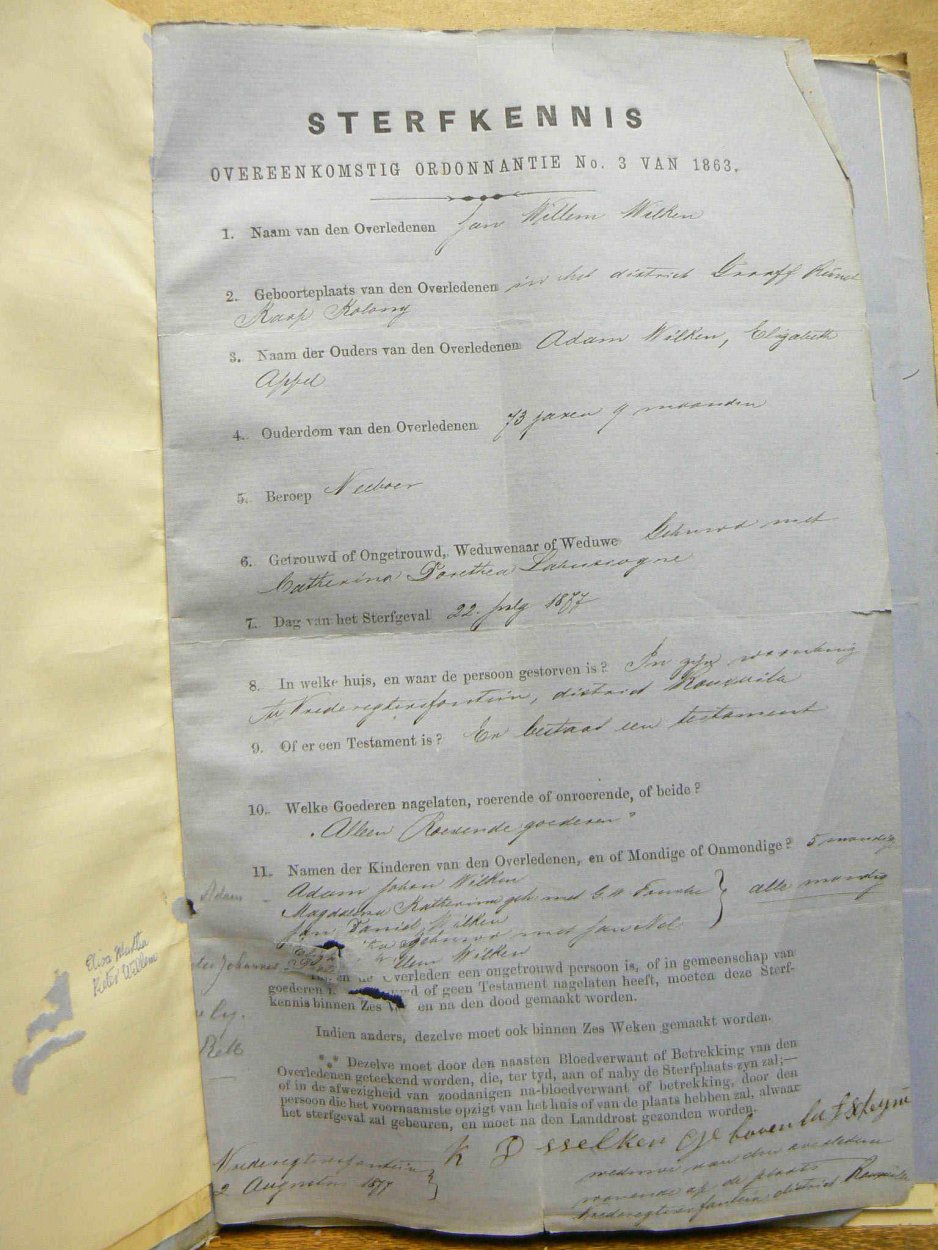 STERFKENNIS
OVEREENKOMSTIG ORDONNANTIE No. 3 VAN 1863.
1. Naam van den Overledenen Jan Willem Wilken
2. Geboorteplaats van den Overledenen in het district Graaff Reinet
Kaap Kolony
3. Naam der Ouders van den Overledenen Adam Wilken, Elizabeth
Appel
4. Ouderdom van den Overledenen 73 jaren 9 maanden
5. Beroep Veeboer
6. Getrouwd of Ongetrouwd, Weduwenaar of Weduwe Gehuwd met
Catherina Dorothea Labuscagne
7. Dag van het Sterfgeval 22 July 1877
8. In welke huis, en waar de persoon gestorven is? In zyn woonhuis
te Vrederegtersfontein, district Rouxville
9. Of er een Testament is? Er bestaat een testament
10. Welke Goederen nagelaten, roerende of onroerende, of beide?
Alleen Roerende goederen
11. Namen der Kinderen van den Overledenen, en of Mondige of Onmondige? 5 mondig
Adam Johan Wilken
Magdalena Katherina geh. met G.
Jan Daniel Wilken
alle mondig
met
Willem Wilken
Overleden een ongetrouwd persoon is, of in gemeenschap van
goederen of geen Testament nagelaten heeft, moeten deze Sterf-
kennis binnen Zes en na den dood gemaakt worden.
Indien anders, dezelve moet ook binnen Zes Weken gemaakt worden.
Dezelve moet door den naasten Bloedverwant of Betrekking van den
Overledenen geteekend worden, die, ter tyd, aan of naby de Sterfplaats zyn zal;—
of in de afwezigheid van zoodanigen na-bloedverwant of betrekking, door den
persoon die het voornaamste opzigt van het huis of van de plaats hebben zal, alwaar
het sterfgeval zal gebeuren, en moet na den Landdrost gezonden worden.
Vrederegtersfontein
2 Augustus 1877
weduwe van den overledene
wonende op de plaats
Vrederegtersfontein district Rouxville
Adam
Johannes
Eliza Martha
Pieter Willem